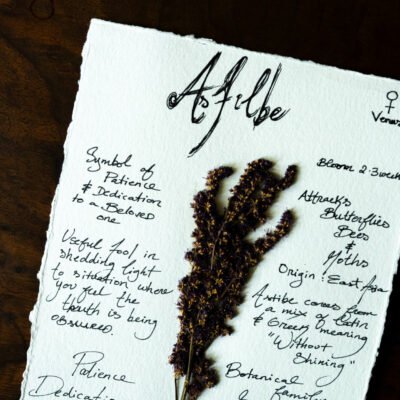 Asfilbe
♀
Venus
Symbol of
Patience
& Dedication
to a Beloved
one
Useful tool in
shedding light
to situation where
you feel the
truth is being
obscured.
Patience
Dedication
Bloom 2-3 week
Attracts
Butterflies
Bees
&
Moths
Origin: East Asia
Astilbe comes from
a mix of Latin
& Greek meaning
"Without
Shining"
Botanical
family